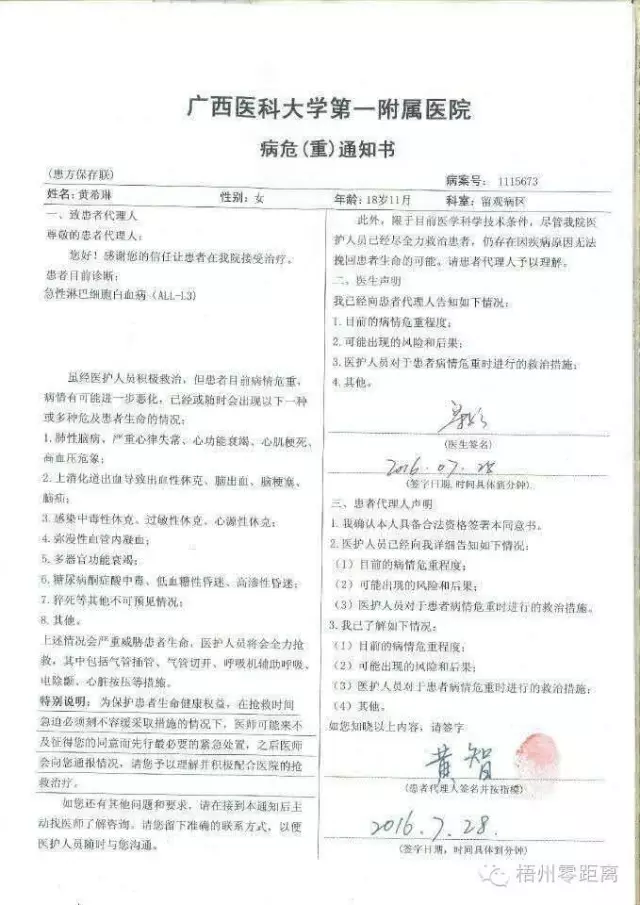 广西医科大学第一附属医院
病危(重)通知书
(患方保存联)
病案号: 1115673
姓名: 黄希琳 性别: 女 年龄: 18岁11月 科室: 留观病区
一、致患者代理人
尊敬的患者代理人:
您好! 感谢您的信任让患者在我院接受治疗。
患者目前诊断:
急性淋巴细胞白血病 (ALL-L3)
虽经医护人员积极救治, 但患者目前病情危重,
病情有可能进一步恶化, 已经或随时会出现以下一种
或多种危及患者生命的情况:
1.肺性脑病、严重心律失常、心功能衰竭、心肌梗死、
高血压危象;
2.上消化道出血导致出血性休克、脑出血、脑梗塞、
脑疝;
3.感染中毒性休克、过敏性休克、心源性休克;
4.弥漫性血管内凝血;
5.多器官功能衰竭;
6.糖尿病酮症酸中毒、低血糖性昏迷、高渗性昏迷;
7.猝死等其他不可预见情况;
8.其他。
上述情况会严重威胁患者生命, 医护人员将会全力抢
救, 其中包括气管插管、气管切开、呼吸机辅助呼吸、
电除颤、心脏按压等措施。
特别说明: 为保护患者生命健康权益, 在抢救时间
急迫必须刻不容缓采取措施的情况下, 医师可能来不
及征得您的同意而先行最必要的紧急处置, 之后医师
会向您通报情况, 请您予以理解并积极配合医院的抢
救治疗。
如您还有其他问题和要求, 请在接到本通知后主
动找医师了解咨询。请您留下准确的联系方式, 以便
医护人员随时与您沟通。
此外, 限于目前医学科学技术条件, 尽管我院医
护人员已经尽全力救治患者, 仍存在因疾病原因无法
挽回患者生命的可能。请患者代理人予以理解。
二、医生声明
我已经向患者代理人告知如下情况:
1.目前的病情危重程度;
2.可能出现的风险和后果;
3.医护人员对于患者病情危重时进行的救治措施;
4.其他。
(医生签名)
2016.07.28
(签字日期,时间具体到分钟)
三、患者代理人声明
1.我确认本人具备合法资格签署本同意书。
2.医护人员已经向我详细告知如下情况:
(1) 目前的病情危重程度;
(2) 可能出现的风险和后果;
(3) 医护人员对于患者病情危重时进行的救治措施。
3.我已了解如下情况:
(1) 目前的病情危重程度;
(2) 可能出现的风险和后果;
(3) 医护人员对于患者病情危重时进行的救治措施;
(4) 其他。
如您知晓以上内容, 请签字
黄智
(患者代理人签名并按指模)
2016.7.28.
(签字日期, 时间具体到分钟)
梧州零距离